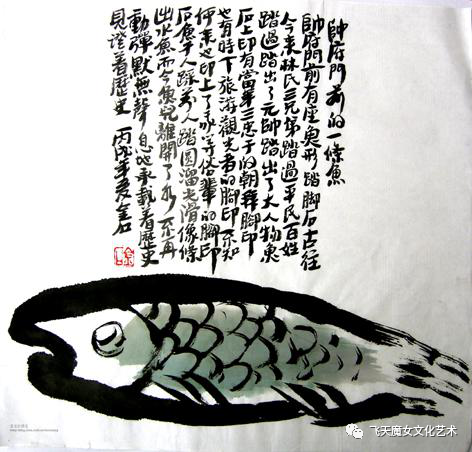 帥府門前的一條魚
帥府門前有座魚形踏脚石古往
今来林氏三兄弟踏過平民百姓
踏過踏出了元帥踏出了大人物魚
石上印有當年三忠于的朝拜脚印
也有時下旅游觀光者的脚印不知
何来也印上了我等俗輩的脚印
石魚千人踩萬人踏圆溜光滑像條
出水魚而今魚兒離開了水不再
動彈默無聲息地承載着歷史
見證着歷史 丙戌年 金石
飞天魔女文化艺术